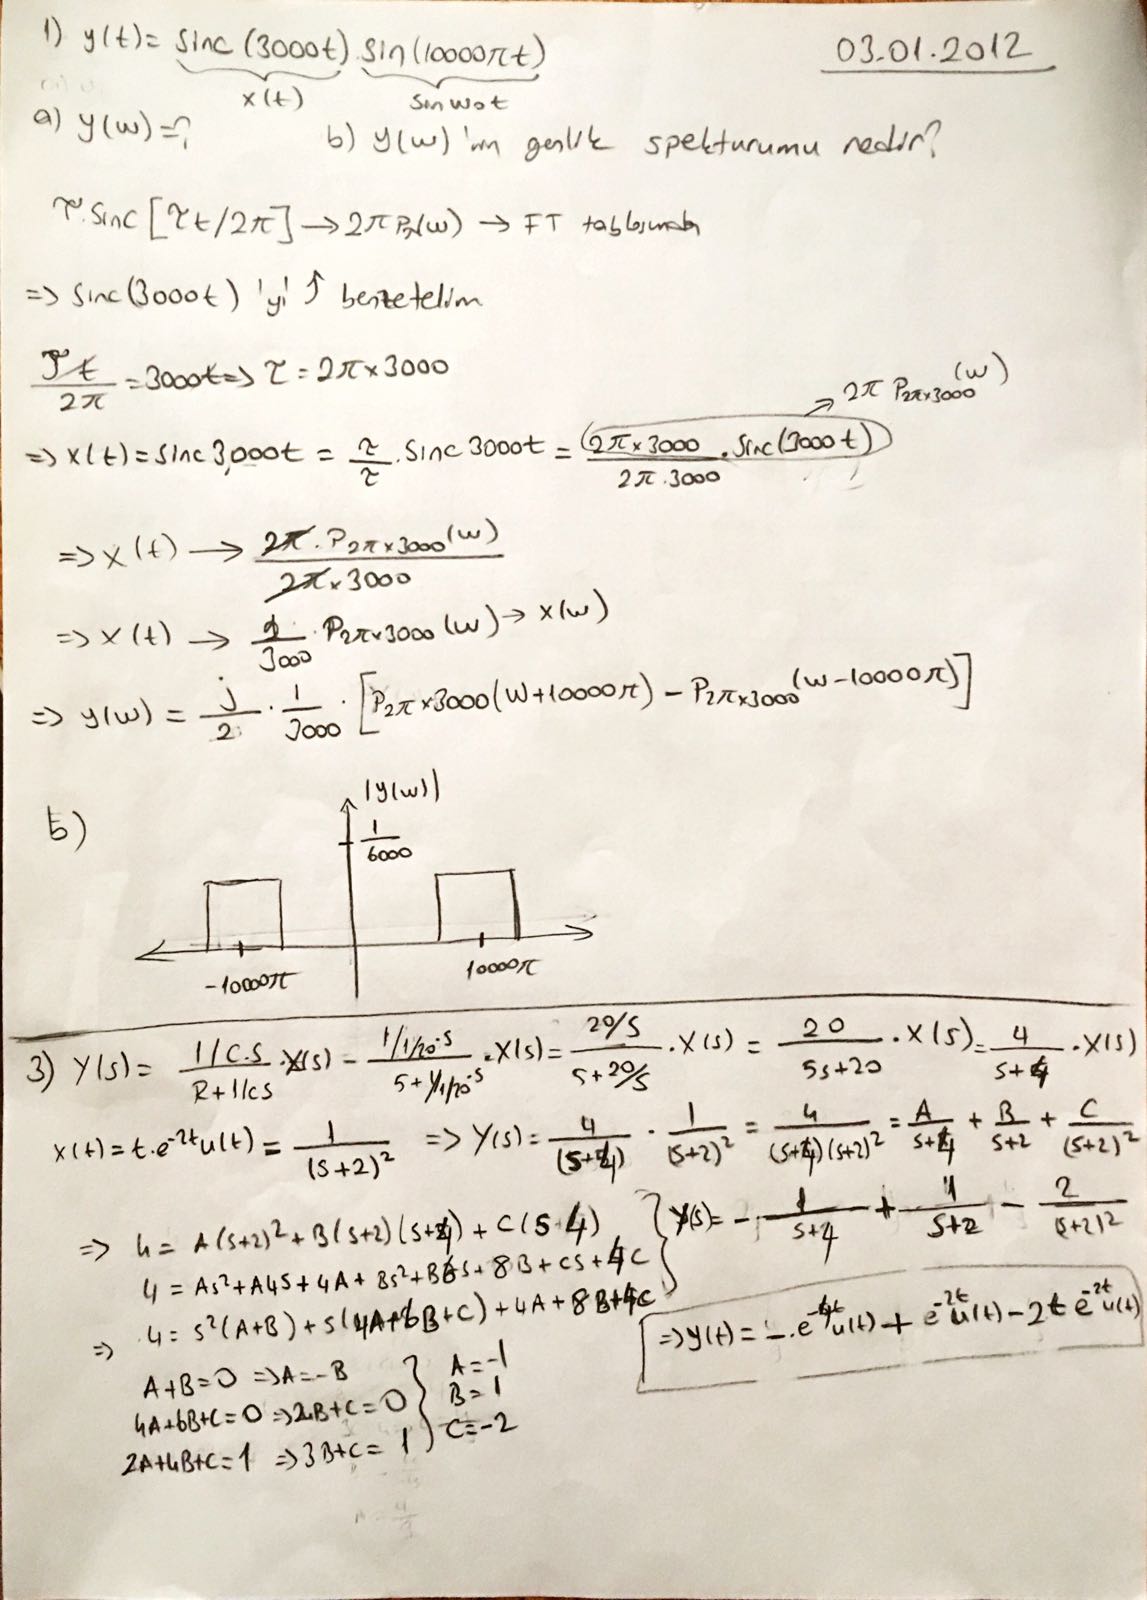 1) y(t) = sinc(3000t) sin(10000πt)
03.01.2012
x(t) sinwot
a) y(w)=?
b) y(w)'nın genlik spekturumu nedir?
τ.sinc[τt/2π] → 2π Pτ(w) → FT tablosundan
=> sinc(3000t) 'yi ↑ benzetelim
τt/2π = 3000t => τ = 2π×3000
2π P2π×3000(w)
=> x(t) = sinc3000t = τ/τ . sinc3000t = 2π×3000 . sinc(3000t) / 2π.3000
=> x(t) → 2π . P2π×3000(w) / 2π×3000
=> x(t) → 1/3000 . P2π×3000(w) → x(w)
=> y(w) = j/2 . 1/3000 . [P2π×3000(w+10000π) − P2π×3000(w−10000π)]
b)
|y(w)|
1/6000
-10000π 10000π
3) Y(s) = 1/C.s / R+1/cs . X(s) = 1/1/20.s / 5+1/1/20.s . X(s) = 20/s / 5+20/s . X(s) = 20 / 5s+20 . X(s) = 4 / s+4 . X(s)
x(t) = t.e^-2t u(t) = 1/(s+2)² => Y(s) = 4/(s+4) . 1/(s+2)² = 4/(s+4)(s+2)² = A/s+4 + B/s+2 + C/(s+2)²
=> 4 = A(s+2)² + B(s+2)(s+4) + C(s 4) } Y(s) = − 1/s+4 + 1/s+2 − 2/(s+2)²
4 = As²+A4s+4A+Bs²+B6s+8B+Cs+4C
=> 4 = s²(A+B) + s(4A+6B+C) + 4A+8B+4C
=> y(t) = −.e^-4t u(t) + e^-2t u(t) − 2t e^-2t u(t)
A+B=0 => A=−B A=−1
4A+6B+C=0 => 2B+C=0 B=1
2A+4B+C=1 => 3B+C=1 C=−2